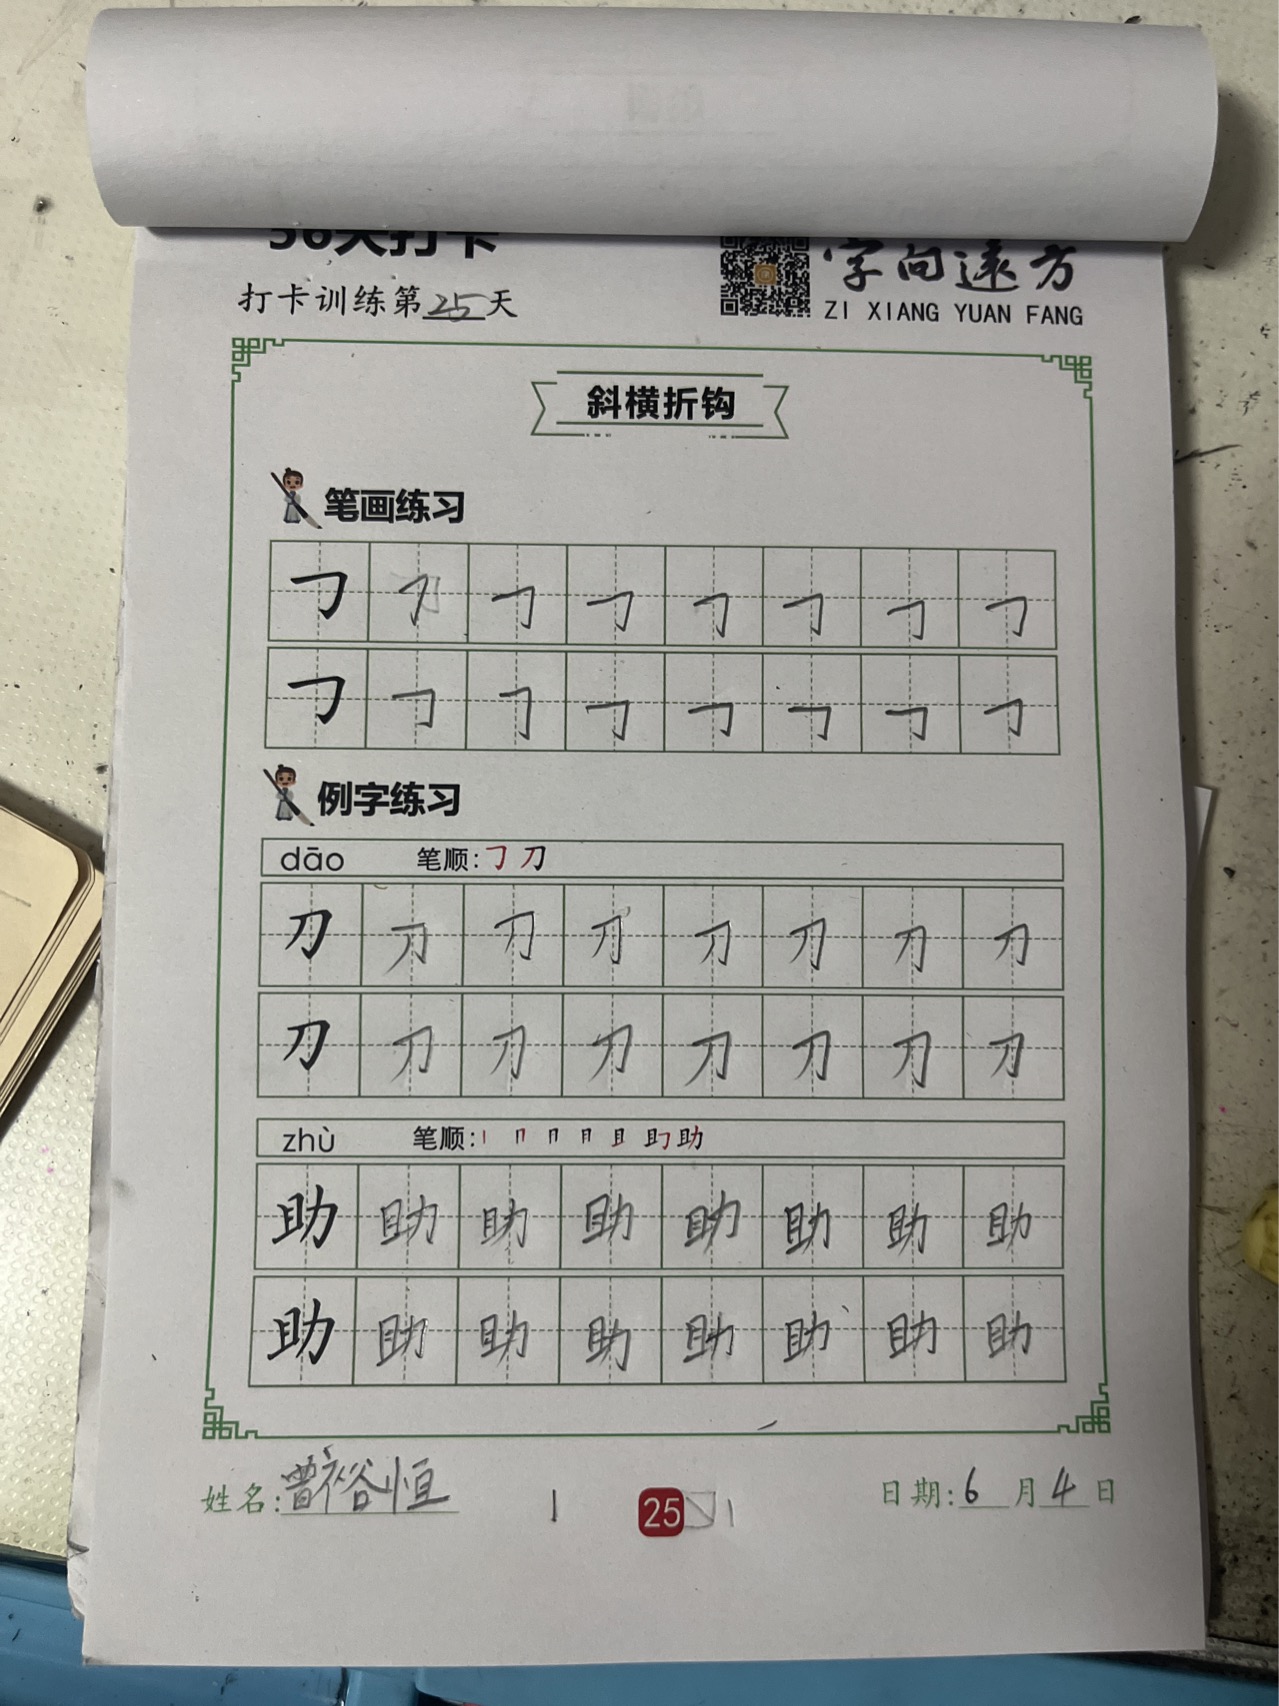 56天打卡
字向远方
打卡训练第25天
ZI XIANG YUAN FANG
斜横折钩
笔画练习
例字练习
dāo 笔顺: 𠃌 刀
刀 刀 刀 刀 刀 刀 刀 刀
刀 刀 刀 刀 刀 刀 刀 刀
zhù 笔顺: 助
助 助 助 助 助 助 助 助
助 助 助 助 助 助 助 助
姓名: 曾裕恒
25
日期: 6月4日